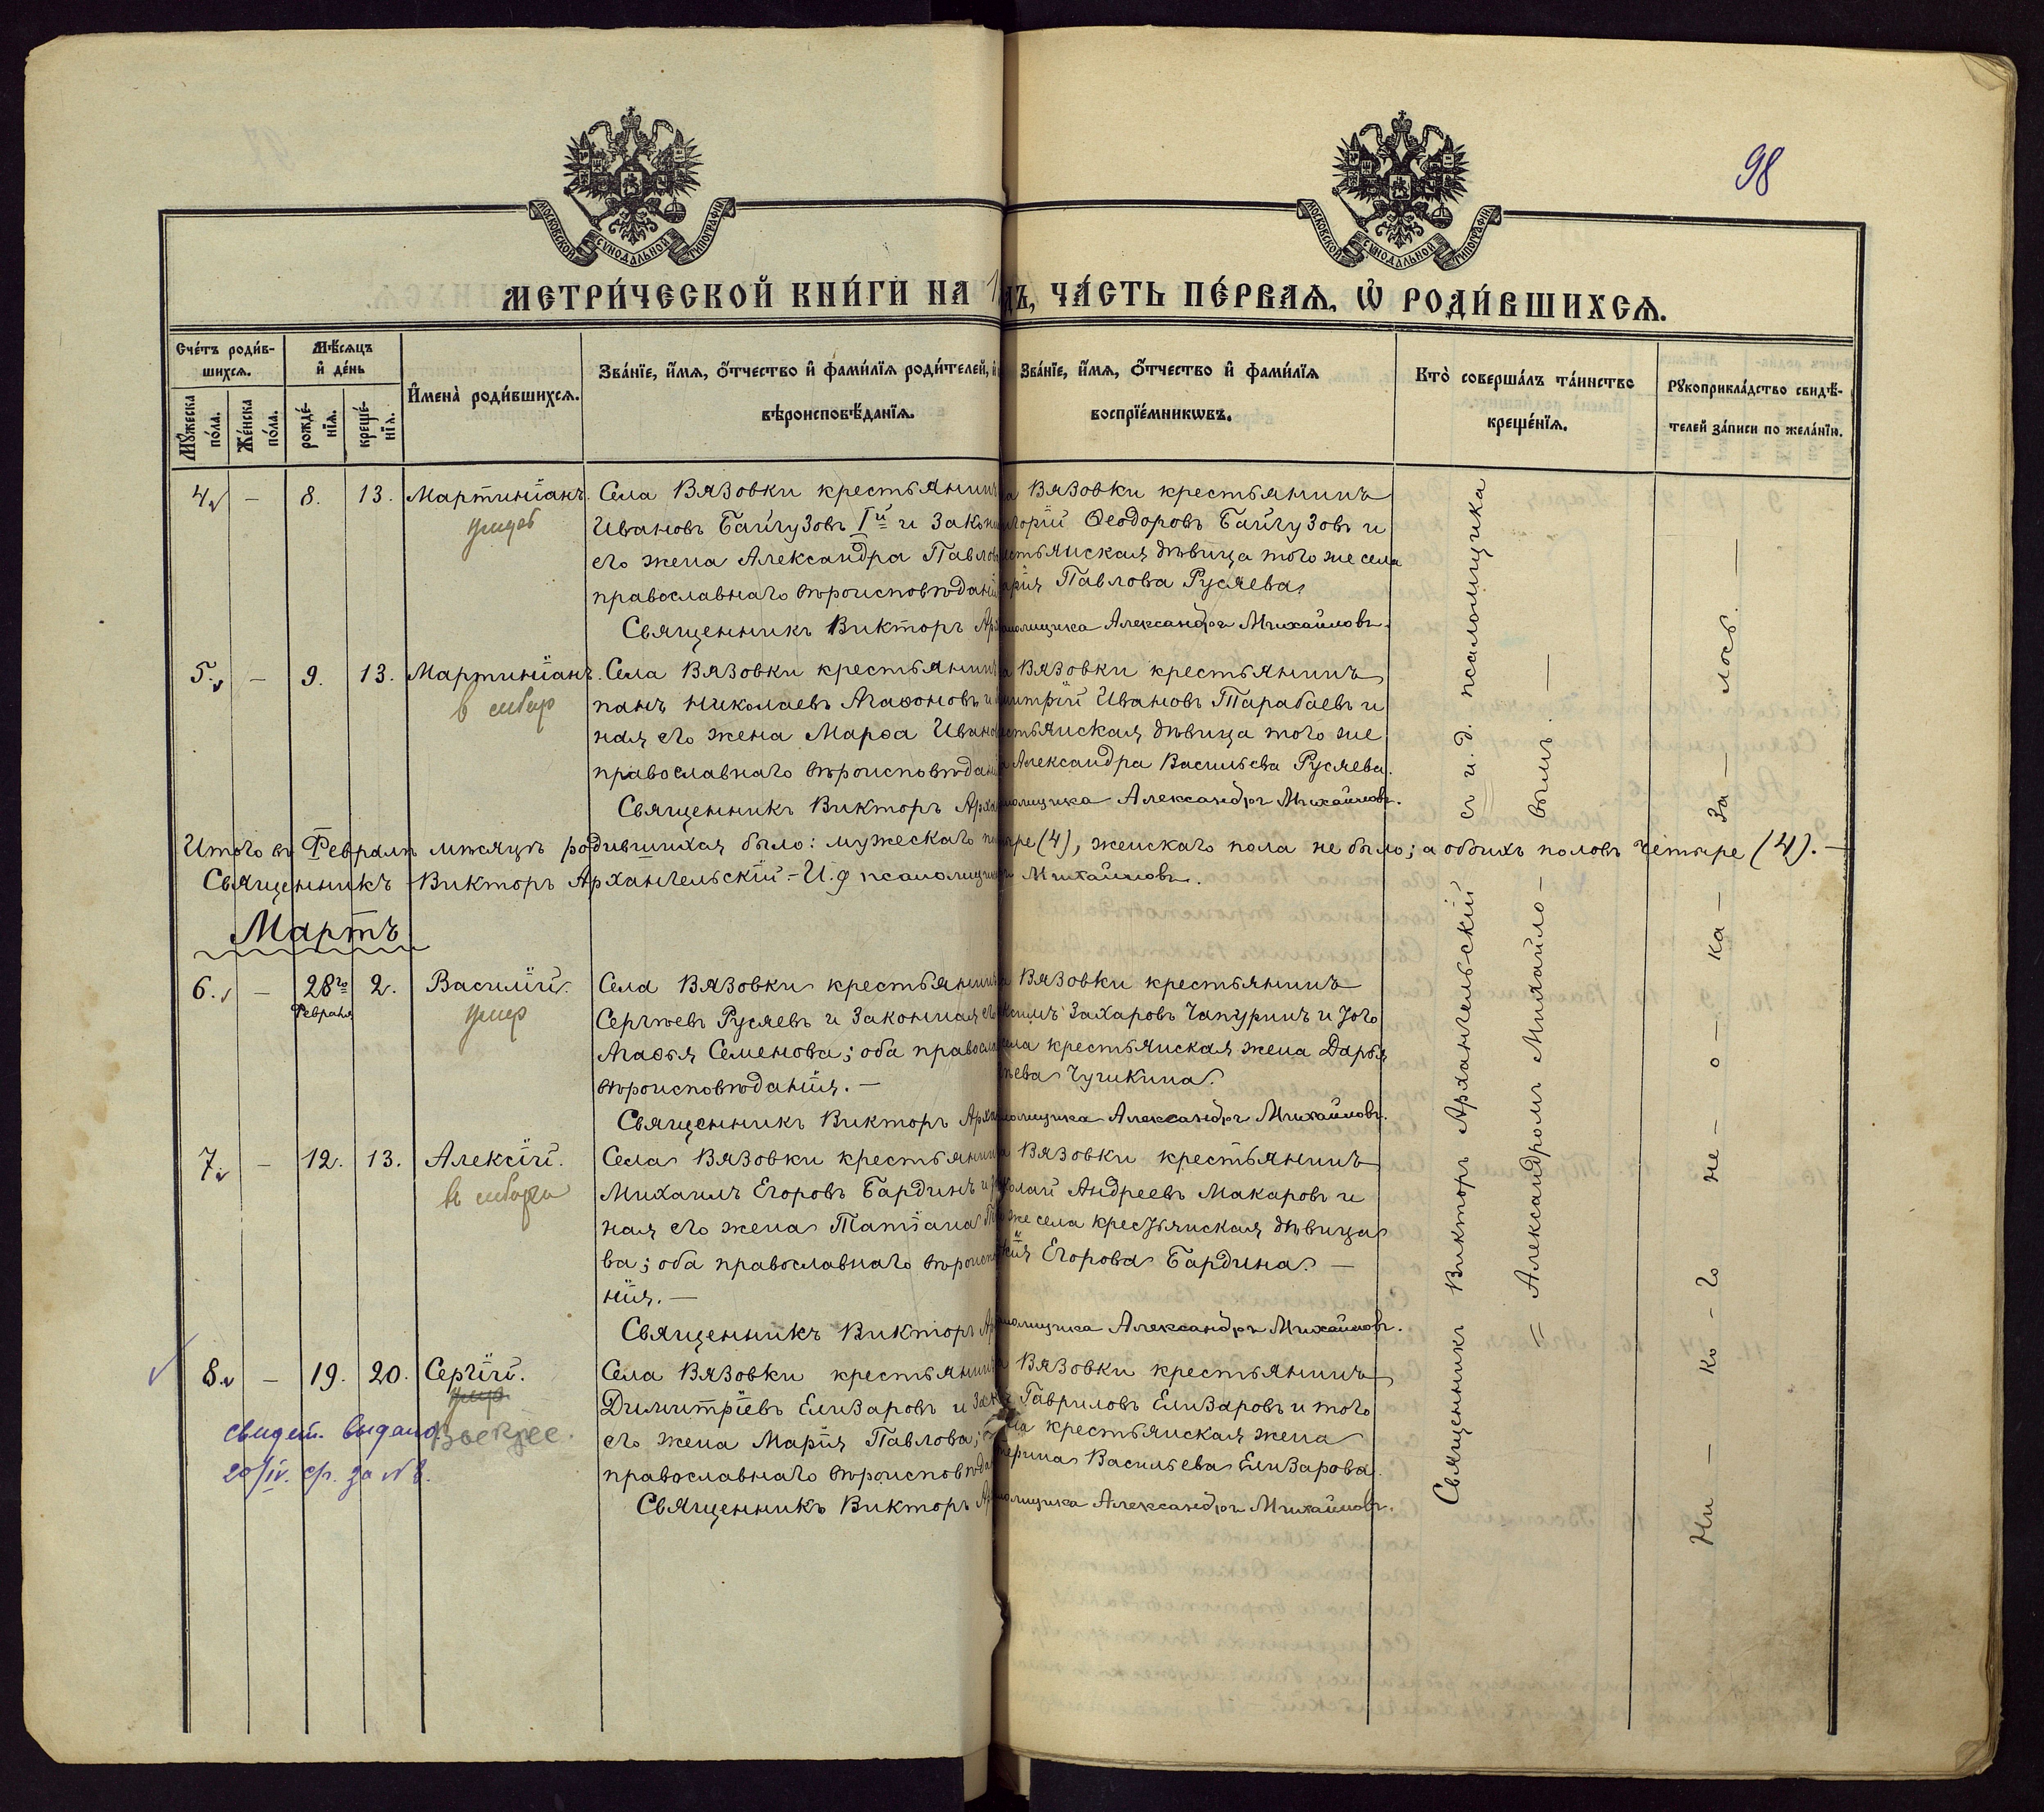 98
МОСКОВСКОЙ СУНОДАЛЬНОЙ ТИПОГРАФІИ
МОСКОВСКОЙ СУНОДАЛЬНОЙ ТИПОГРАФІИ
МЕТРИ́ЧЕСКОЙ КНИ́ГИ НА 1
ДЪ, ЧА́СТЬ ПЕ́РВАЯ, Ѡ҆ РОДИ́ВШИХСЯ.
Сче́тъ роди́в-
шихся.
Мѣ́сяцъ
и҆ де́нь
Мꙋ́жеска по́ла.
Же́нска по́ла.
рожде́-
нїя.
креще́-
нїя.
И҆мена̀ роди́вшихся.
Зва́нїе, и҆́мя, ѻ҆́тчество и҆ фами́лїя роди́телей, и҆
вѣроисповѣ́данїя.
Зва́нїе, и҆́мя, ѻ҆́тчество и҆ фами́лїя
воспрїе́мникѡвъ.
Кто̀ соверша́лъ та́инство
креще́нїя.
Рꙋкоприкла́дство свидѣ́-
телей за́писи по жела́нїю.
4. – 8. 13. Мартиніанъ.
Села Вязовки крестьянинъ
Ивановъ Байгузовъ Iй и закон
его жена Александра Павлов
православнаго вѣроисповѣдані
Священникъ Викторъ Ар
а Вязовки крестьянинъ
игорій Ѳеодоровъ Байгузовъ и
естьянская дѣвица того же села
арія Павлова Русяева
паломщика Александръ Михайловъ.
5. – 9. 13. Мартиніанъ.
в сибир
Села Вязовки крестьянинъ
панъ Николаевъ Агаѳоновъ и
ная его жена Марѳа Ивано
православнаго вѣроисповѣдані
Священникъ Викторъ Арха
а Вязовки крестьянинъ
митрій Ивановъ Тарабаевъ и
естьянская дѣвица того же
Александра Васильева Русяева.
паломщика Александръ Михайловъ.
Итого въ Февралѣ мѣсяцѣ родившихся было: мужескаго п
ыре (4), женскаго пола не было; а обоихъ половъ четыре (4). –
Священникъ Викторъ Архангельскій – И. д псаломщик
Михайловъ.
Мартъ
6. – 28го Февраля 2. Василій.
умер
Села Вязовки крестьянинъ
Сергѣевъ Русяевъ и законная ег
Агаѳья Семенова; оба правосла
вѣроисповѣданія. –
Священникъ Викторъ Арха
а Вязовки крестьянинъ
ксимъ Захаровъ Чапуринъ и того
села крестьянская жена Дарья
ева Чушкина.
паломщика Александръ Михайловъ.
7. – 12. 13. Алексій.
Села Вязовки крестьянин
Михаилъ Егоровъ Бардинъ и
ная его жена Татіана
ва; оба православнаго вѣроисп
нія. –
Священникъ Викторъ Ар
а Вязовки крестьянинъ
олай Андреевъ Макаровъ и
же села крестьянская дѣвица
Егорова Бардина. –
паломщика Александръ Михайловъ.
8. – 19. 20. Сергій.
умер
свидет. выдано
20/IV. ср. за № 8.
Села Вязовки крестьянинъ
Димитріевъ Елизаровъ и зак
его жена Марія Павлова; о
православнаго вѣроисповѣда
Священникъ Викторъ Ар
а Вязовки крестьянинъ
Гавриловъ Елизаровъ и того
ла крестьянская жена
терина Васильева Елизарова.
паломщика Александръ Михайловъ.
Священникъ Викторъ Архангельскій съ и. д. псаломщика
= Александромъ Михайло – вымъ. –
Ни – ко – го – не – о – ка – за – лось. –